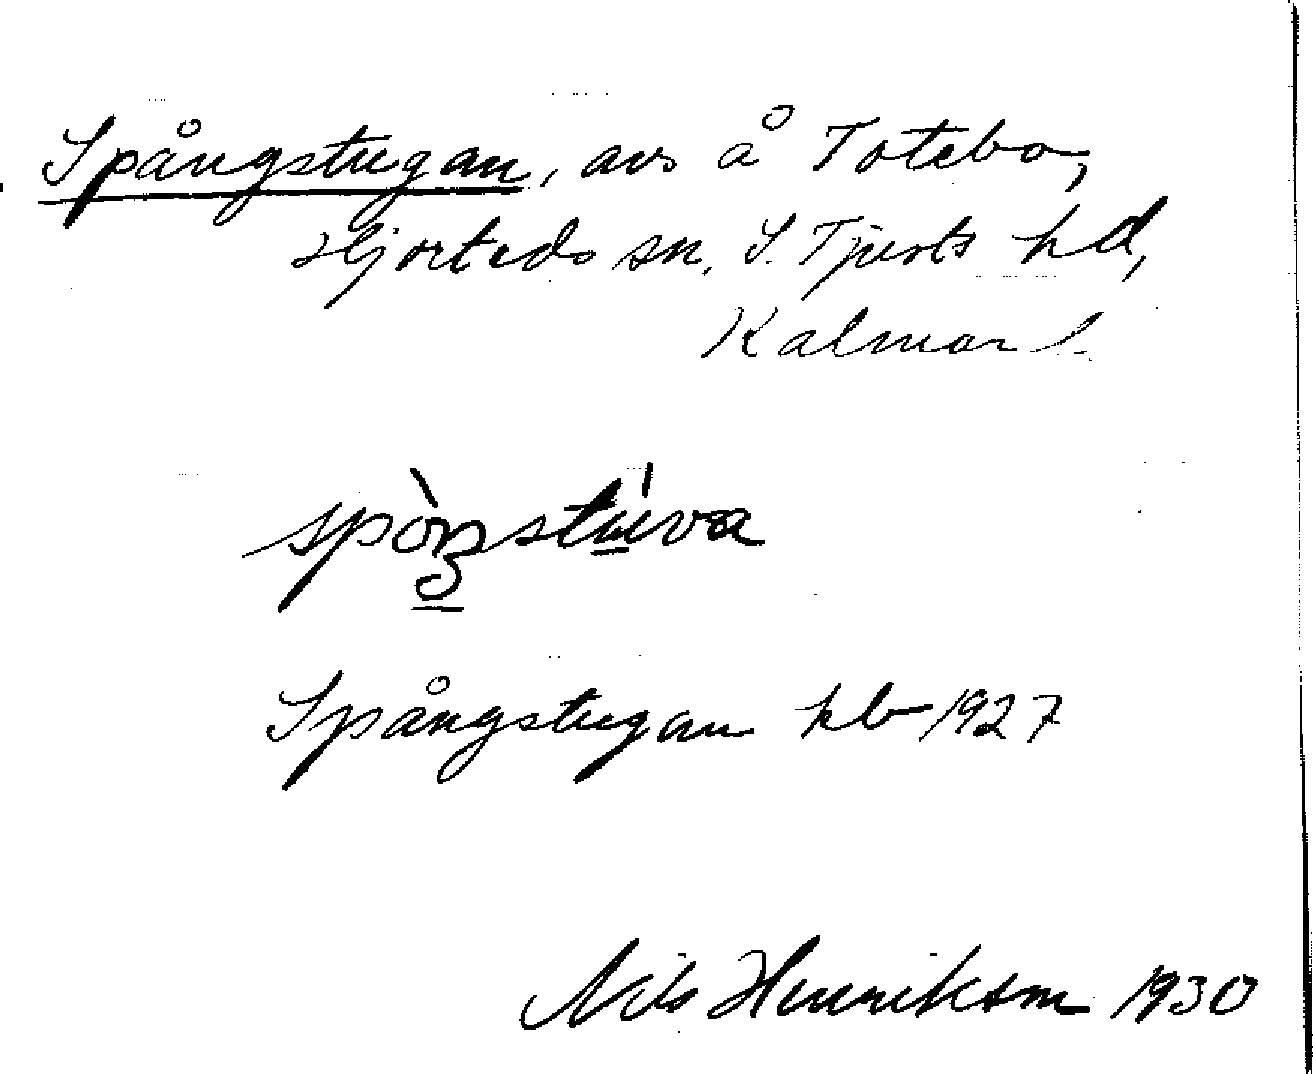 Spångstugan, avs å Totebo,
Hjorteds sn. S. Tjusts hd,
Kalmar l.
Spångstugan kb 1927
Nils Henrikson 1930